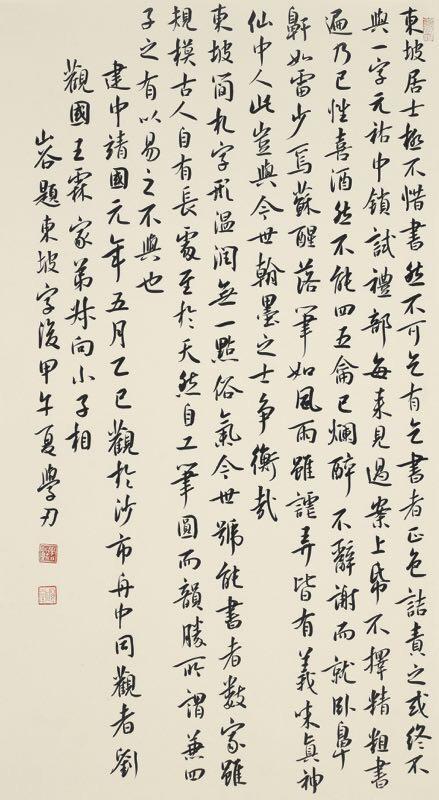 東坡居士極不惜書然不可乞有乞書者正色詰責之或終不
與一字元祐中鎖試禮部每來見過案上帋不擇精粗書
遍乃已性喜酒然不能四五龠已爛醉不辭謝而就臥鼻
鼾如雷少焉蘇醒落筆如風雨雖謔弄皆有義味真神
仙中人此豈與今世翰墨之士爭衡哉
東坡简札字形温潤無一點俗氣今世號能書者數家雖
規模古人自有長處至於天然自工筆圓而韻勝所謂兼四
子之有以易之不與也
建中靖國元年五月乙巳觀於沙市舟中同觀者劉
觀國王霖家弟叔向小子相
山谷題東坡字後甲午夏學刃